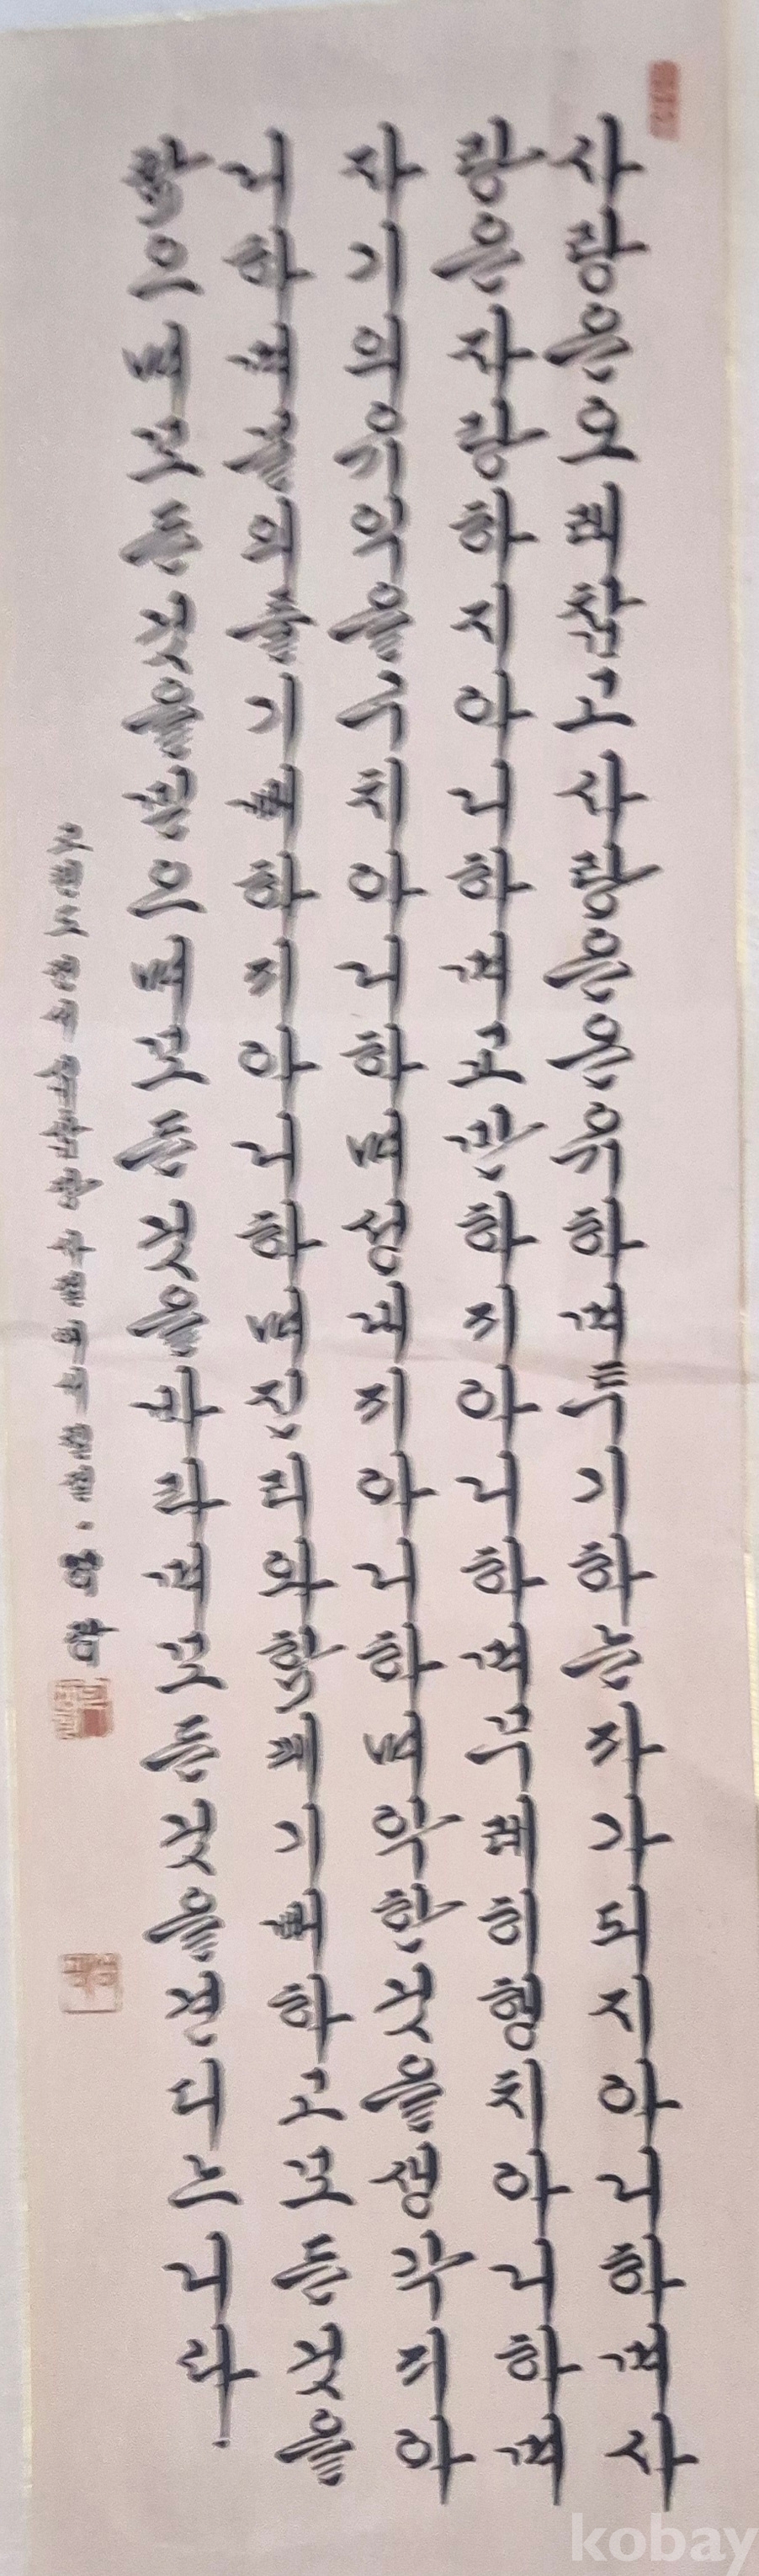 사랑은오래참고사랑은온유하며투기하는자가되지아니하며사
랑은자랑하지아니하며교만하지아니하며무례히행치아니하며
자기의유익을구치아니하며성내지아니하며악한것을생각지아
니하며불의를기뻐하지아니하며진리와함께기뻐하고모든것을
참으며모든것을믿으며모든것을바라며모든것을견디느니라.
고린도전서십삼장사절에서칠절.
kobay